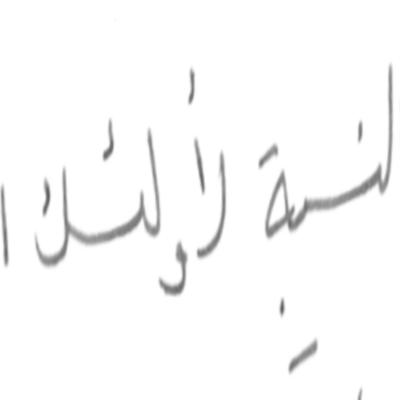 لنسبة لأولئك ا